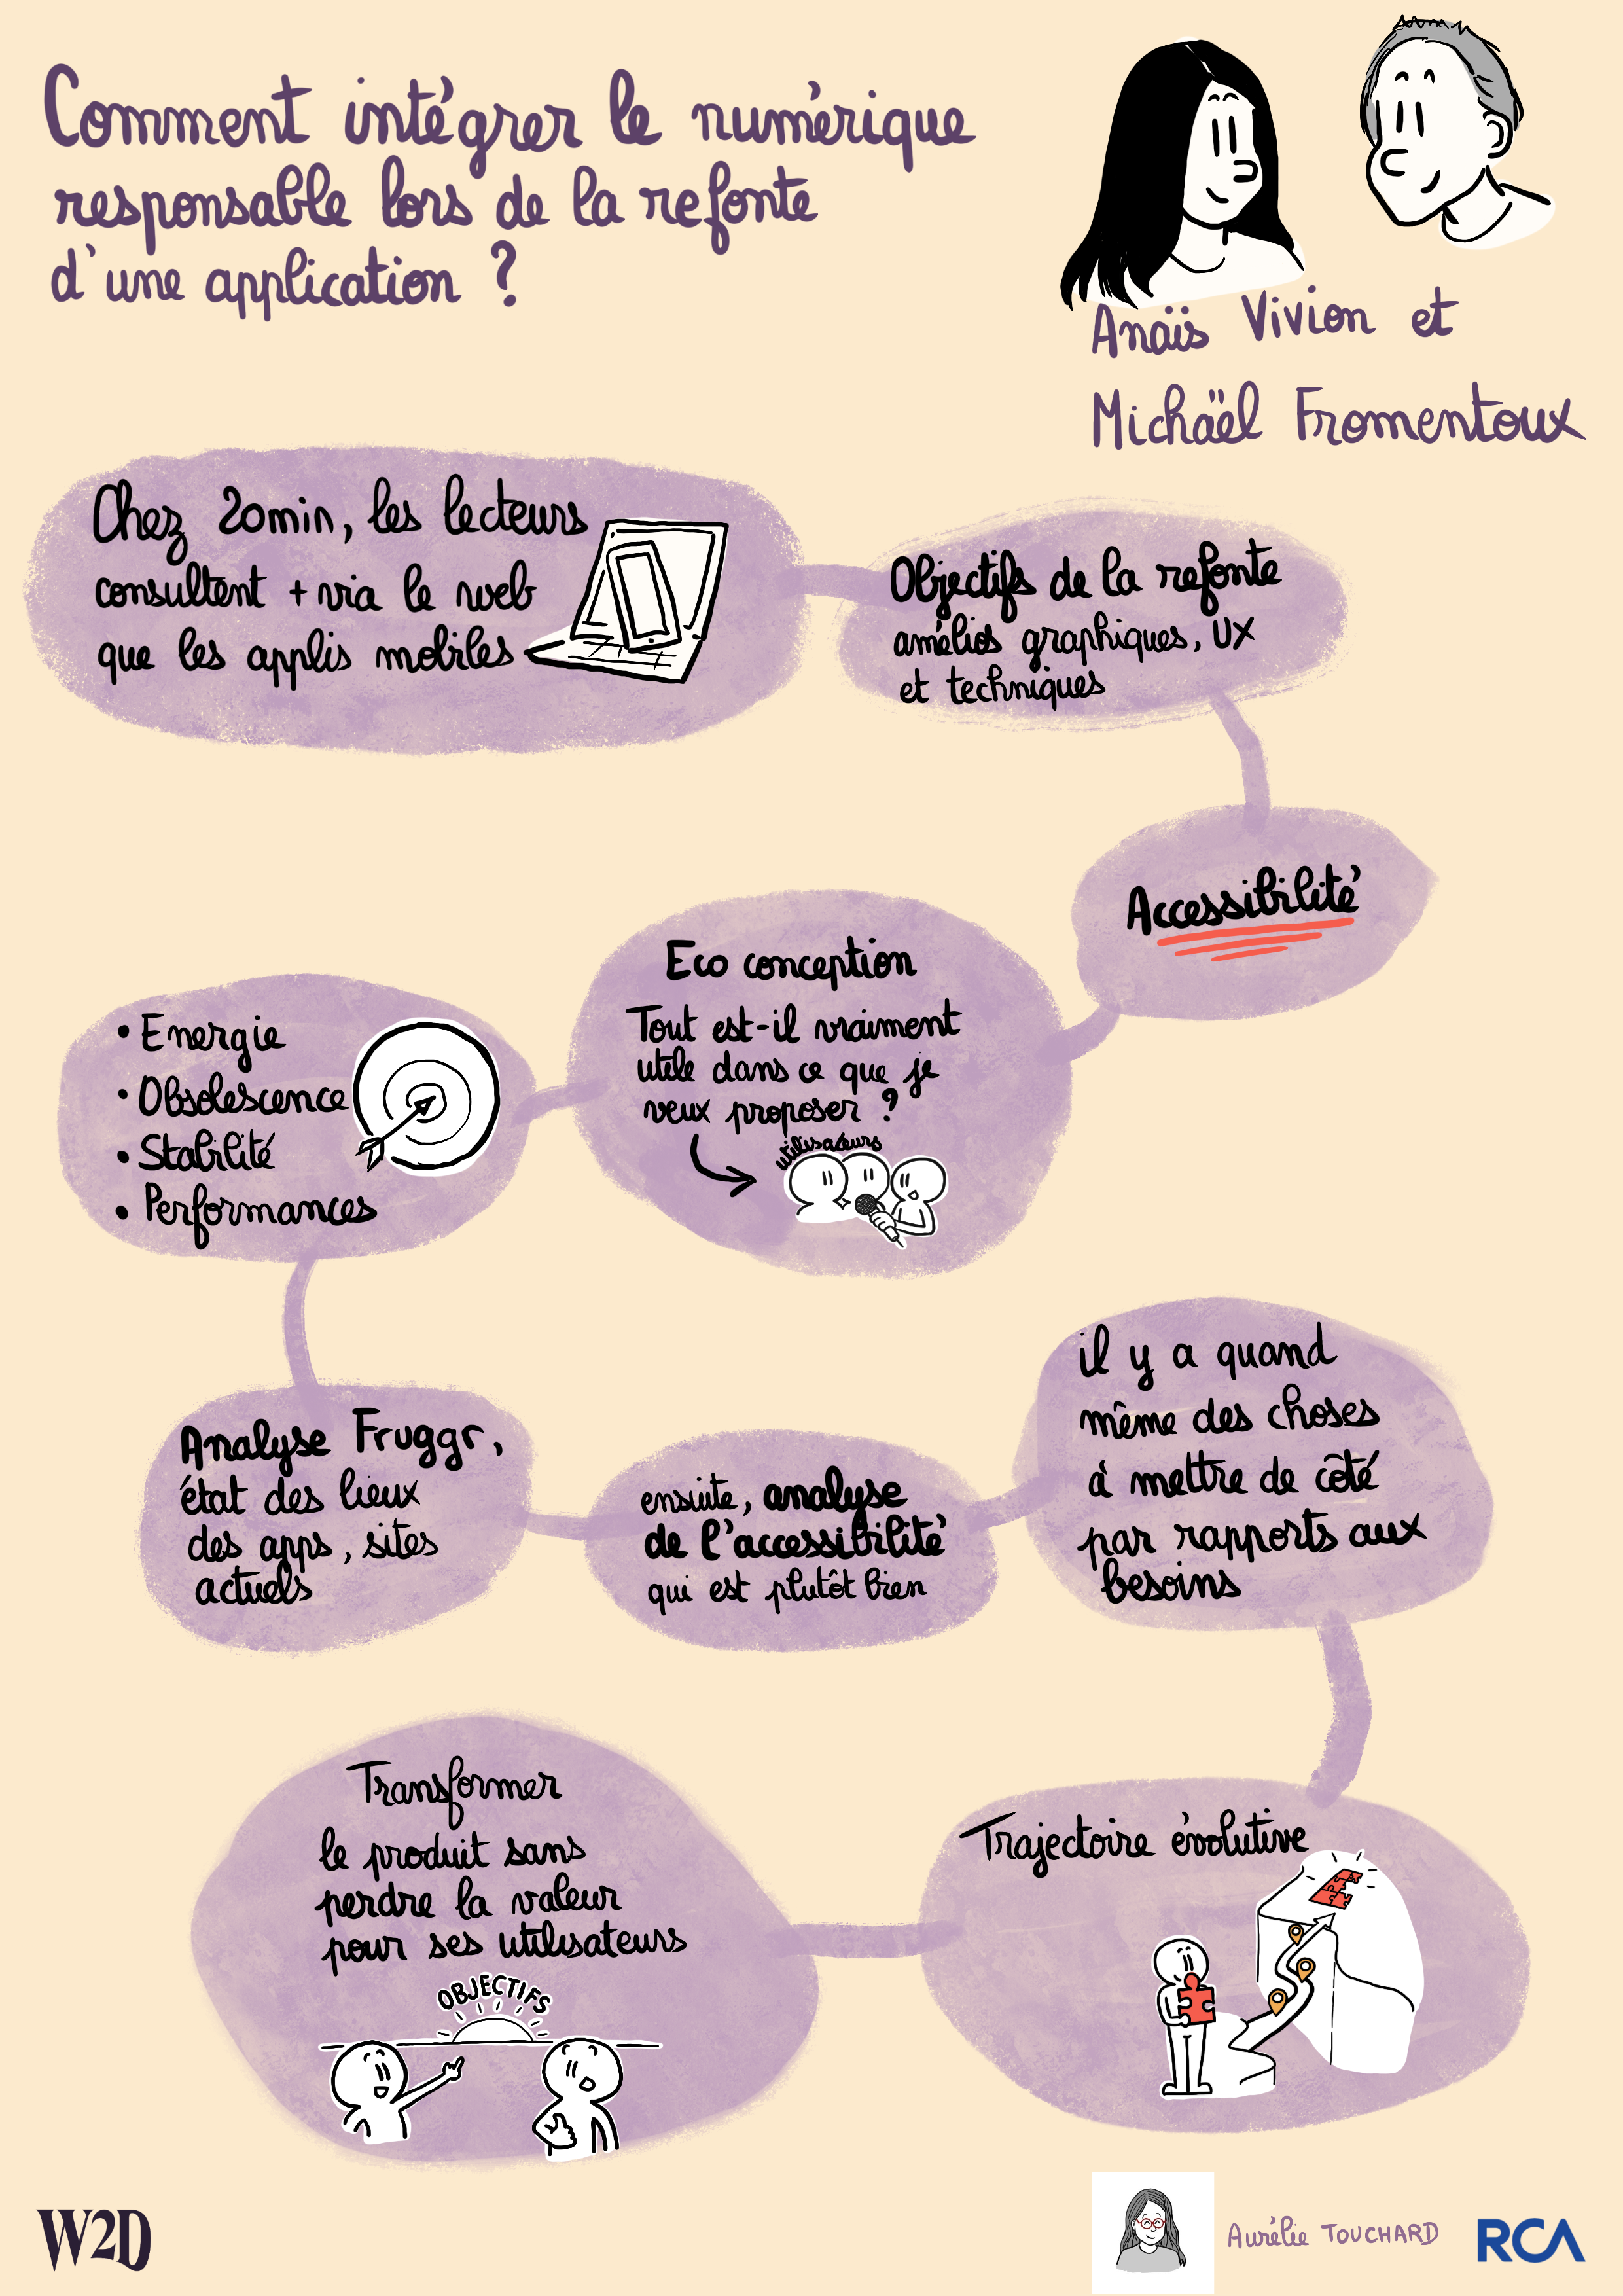 Comment intégrer le numérique
responsable lors de la refonte
d'une application ?
Anaïs Vivion et
Michäël Fromentoux
Chez 20min, les lecteurs
consultent + via le web
que les applis mobiles
Objectifs de la refonte
amélios graphiques, UX
et techniques
Accessibilité
Eco conception
Tout est-il vraiment
utile dans ce que je
veux proposer ?
utilisateurs
• Energie
• Obsolescence
• Stabilité
• Performances
Analyse Fruggr,
état des lieux
des apps, sites
actuels
ensuite, analyse
de l'accessibilité
qui est plutôt bien
il y a quand
même des choses
à mettre de côté
par rapports aux
besoins
Trajectoire évolutive
Transformer
le produit sans
perdre la valeur
pour ses utilisateurs
OBJECTIFS
W2D
Aurélie TOUCHARD
RCA